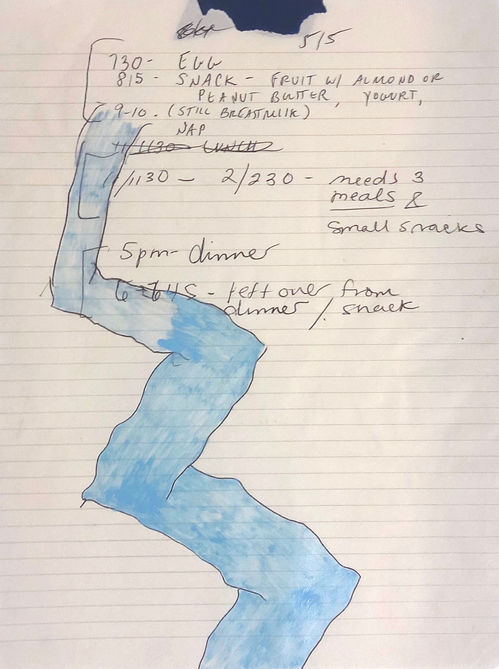 5/5
730- EGG
815- SNACK - FRUIT W/ ALMOND OR
PEANUT BUTTER, YOGURT,
9-10. (STILL BREASTMILK)
NAP
1130 LUNCH
/1130 - 2/230 - needs 3
meals &
small snacks
5pm- dinner
6-645 - left over from
dinner / snack